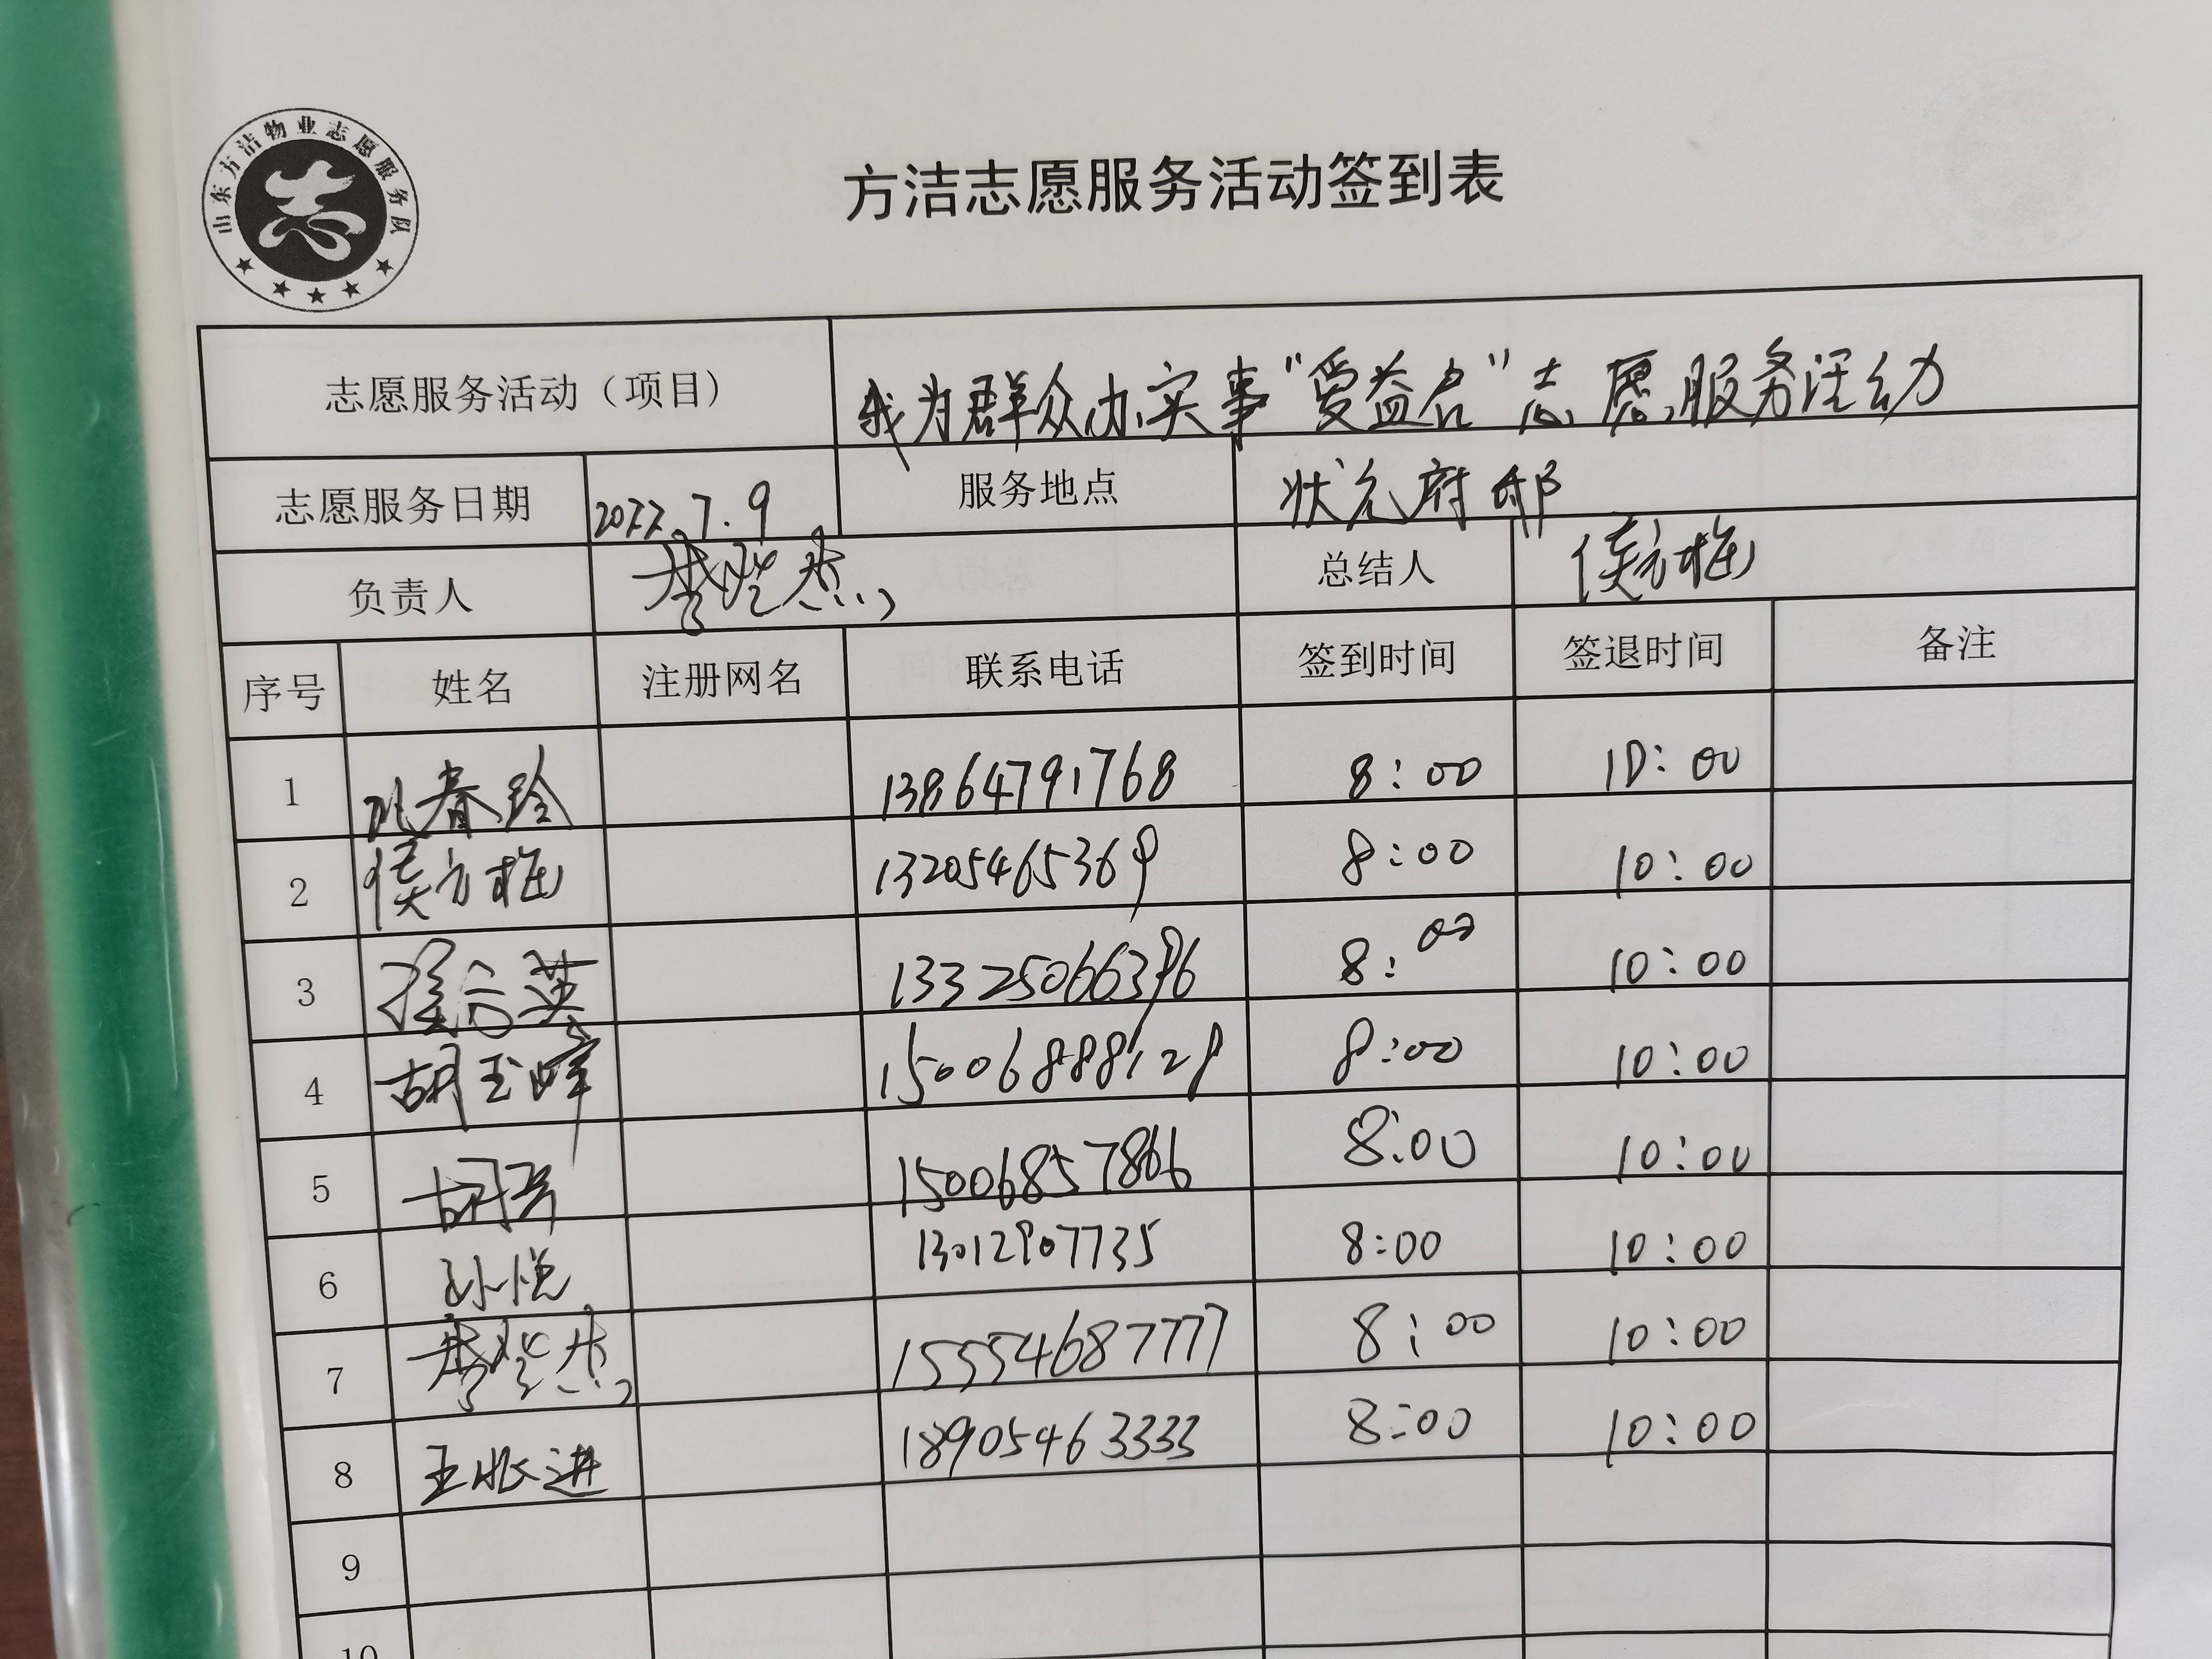 山东方洁物业志愿服务队
方洁志愿服务活动签到表
志愿服务活动（项目） 我为群众办实事“受益名”志愿服务活动
志愿服务日期 2022.7.9 服务地点 状元府邸
负责人 总结人 侯方柱
序号 姓名 注册网名 联系电话 签到时间 签退时间 备注
1 13864791768 8:00 10:00
2 侯方柱 13205465369 8:00 10:00
3 13325066396 8:00 10:00
4 胡玉峰 15006888128 8:00 10:00
5 15006857866 8:00 10:00
6 孙悦 13012907735 8:00 10:00
7 15554687777 8:00 10:00
8 18905463333 8:00 10:00
9
10